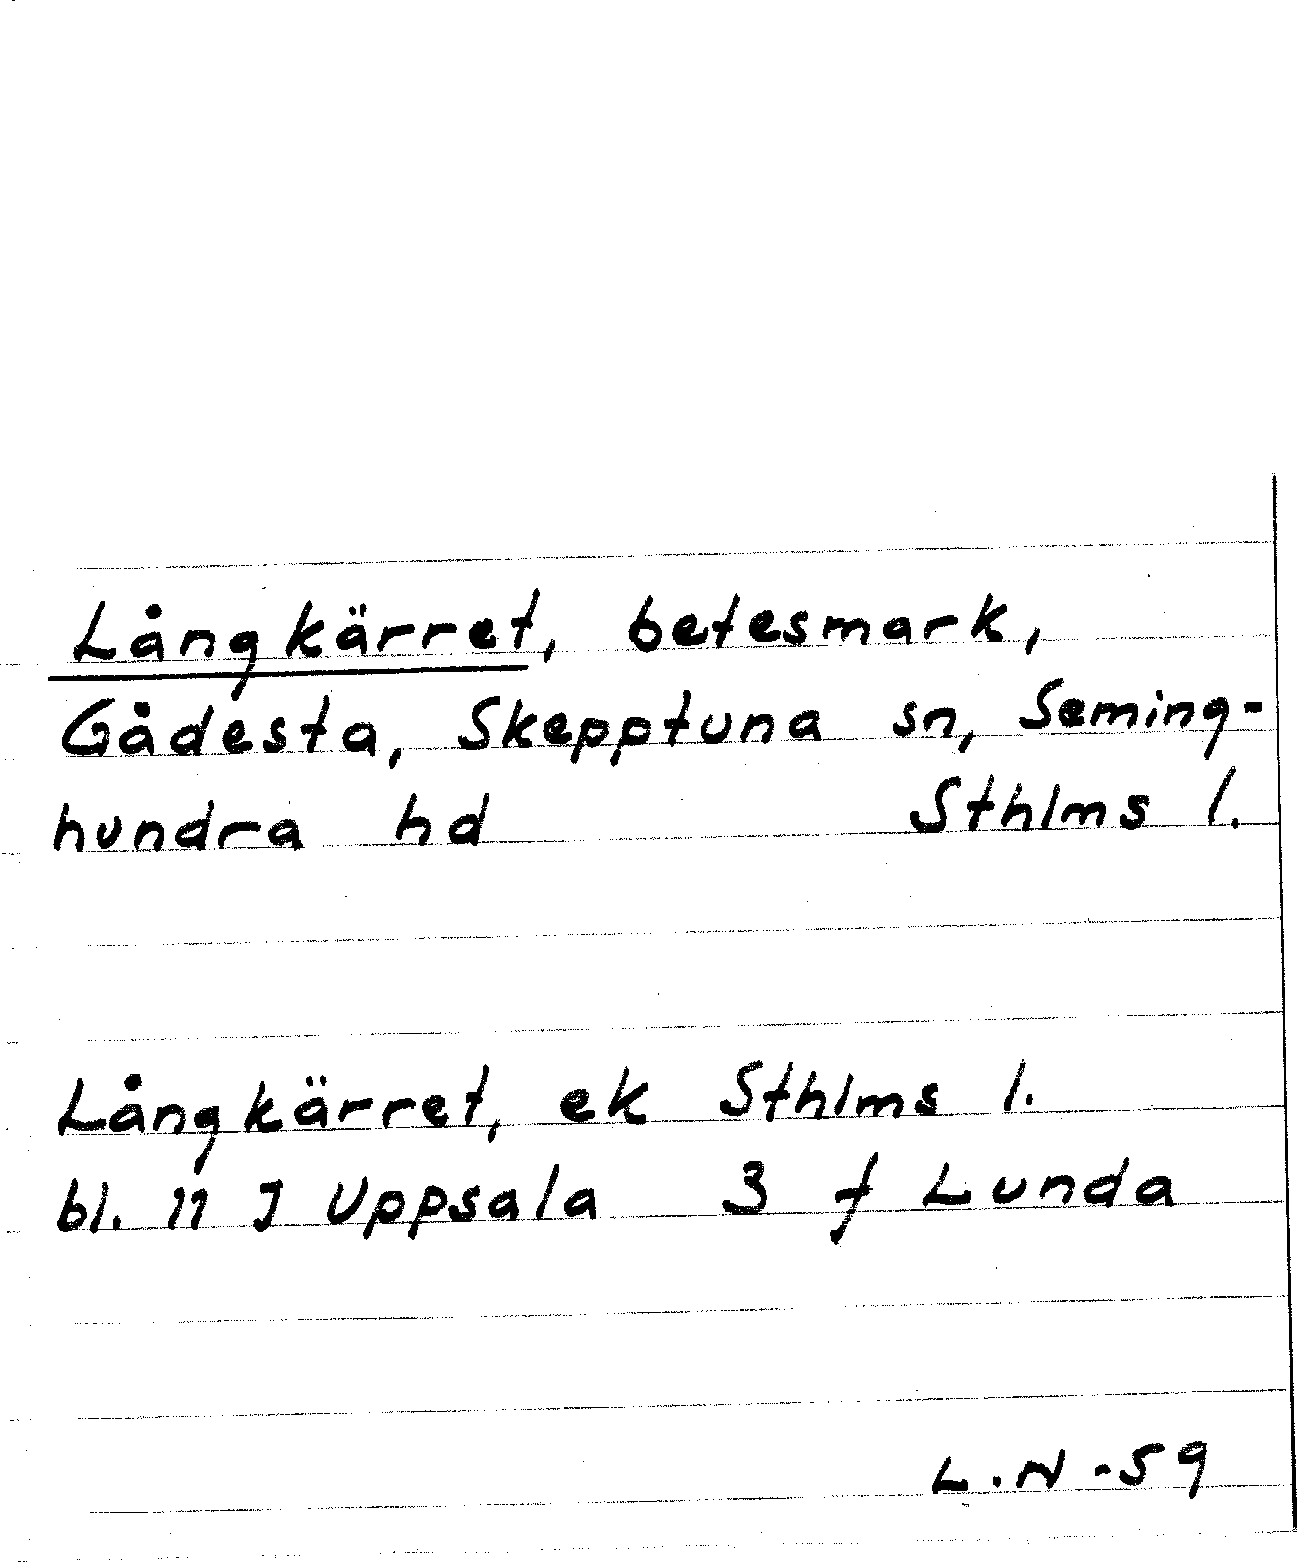 Långkärret, betesmark,
Gådesta, Skepptuna sn, Seming-
hundra hd Sthlms l.
Långkärret, ek Sthlms l.
bl. 11 J Uppsala 3 f Lunda
L.N -59